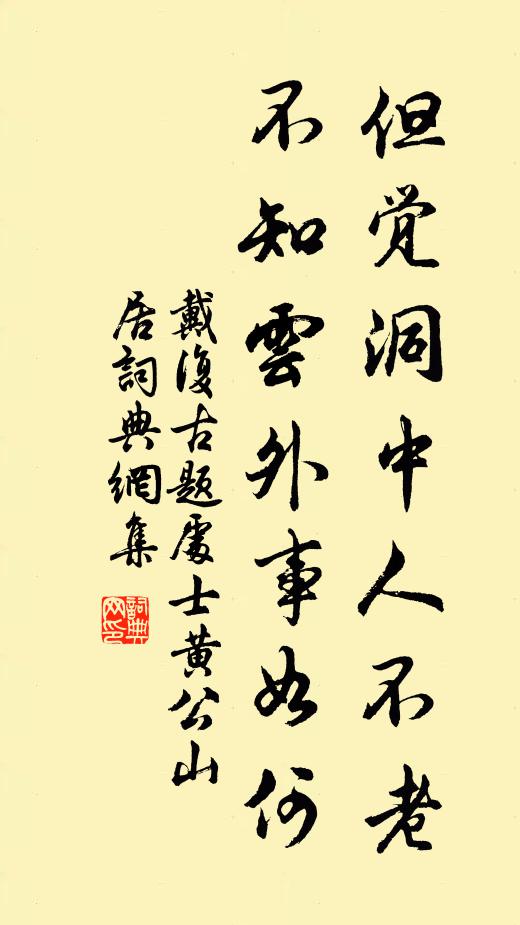 但觉洞中人不老
不知雲外事如何
戴復古題處士黄公山
居詞典網集
詞典
网印